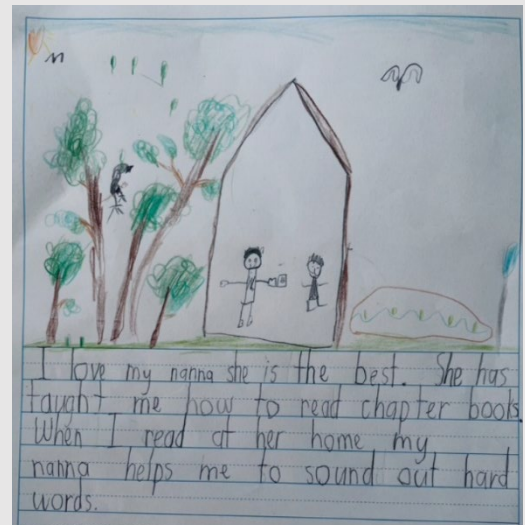 I love my nanna she is the best. She has
taught me how to read chapter books.
When I read at her home my
nanna helps me to sound out hard
words.